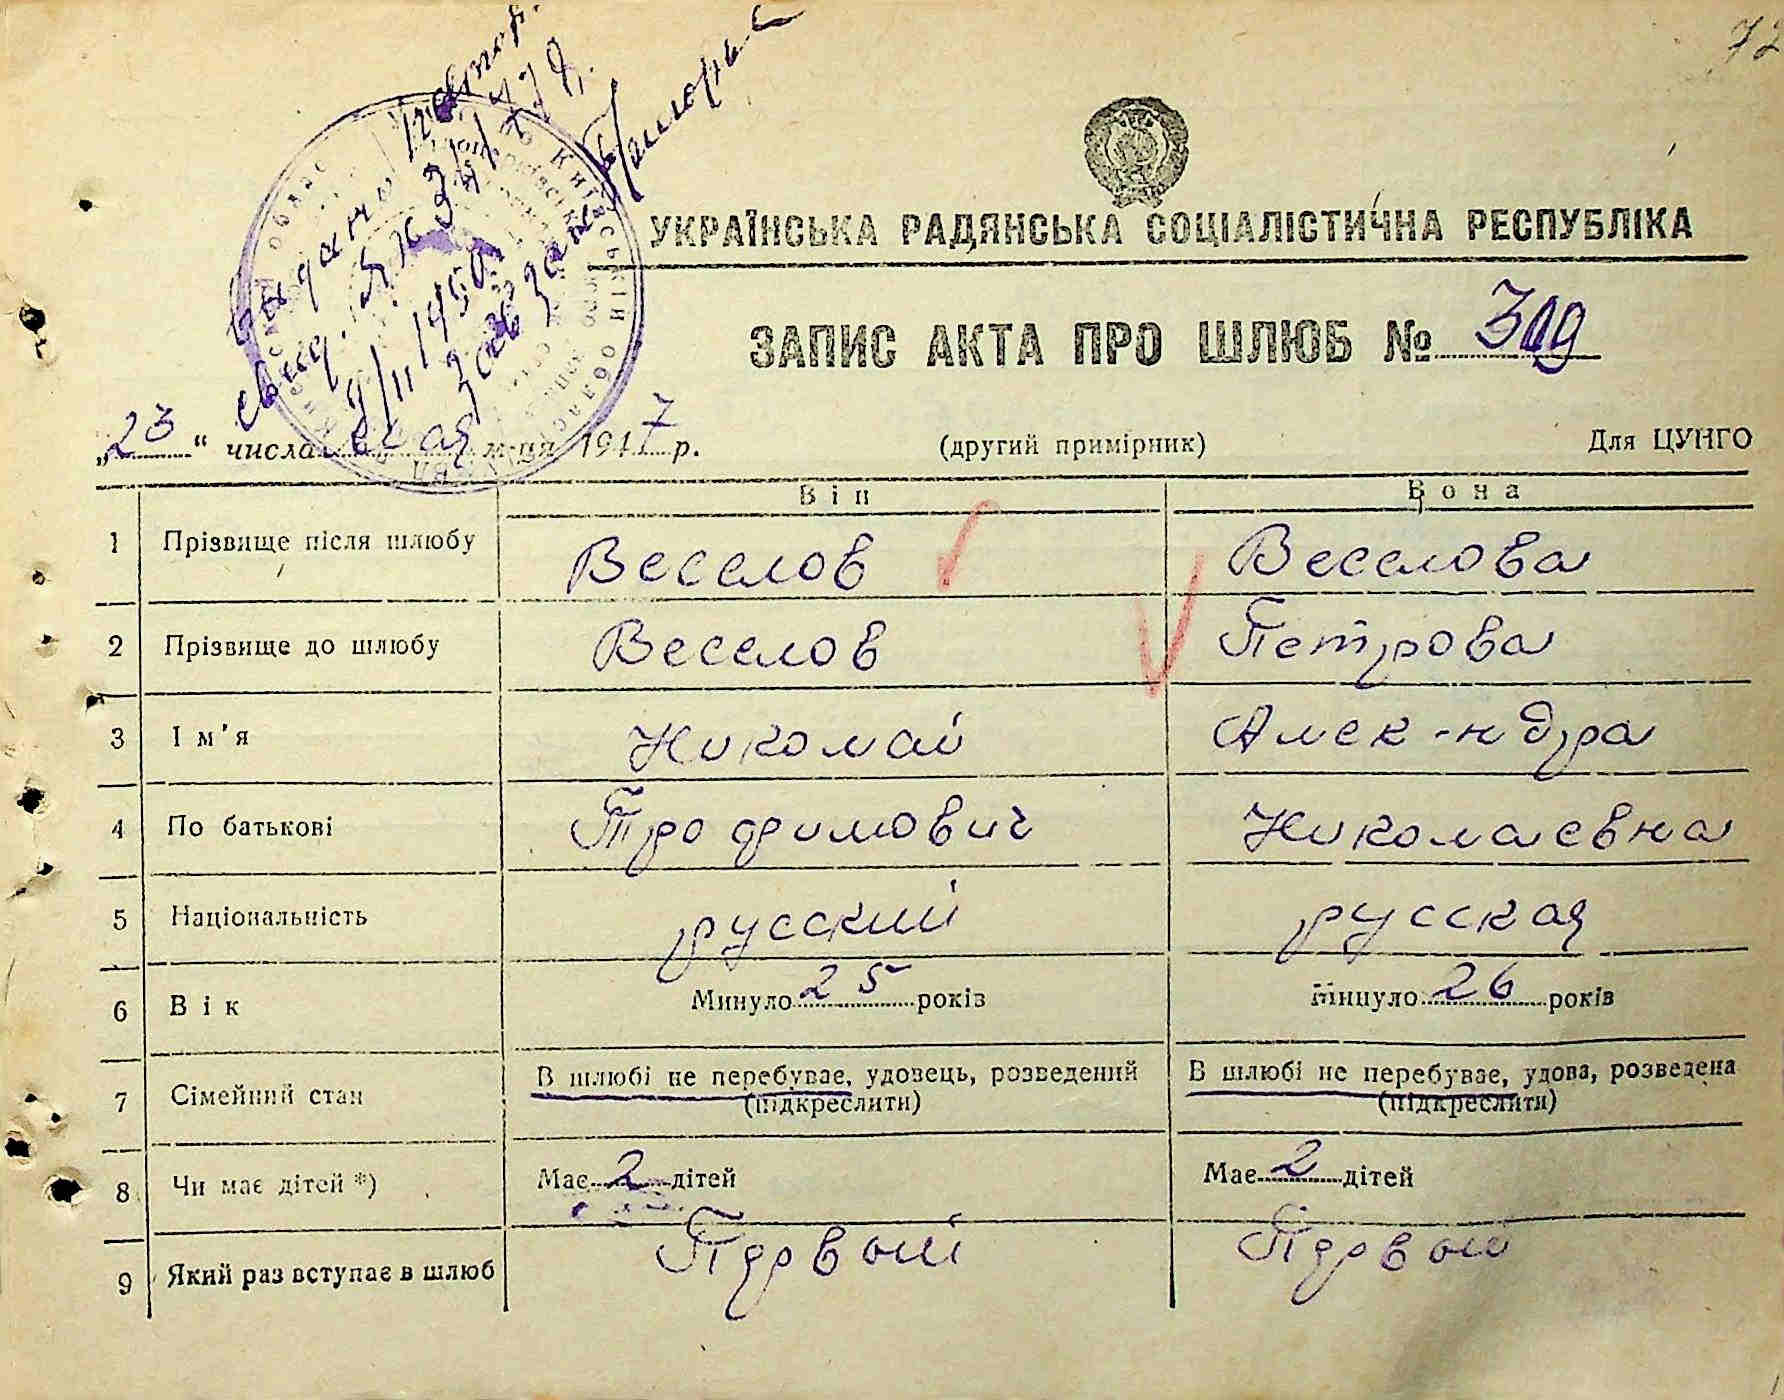 72
УКРАЇНСЬКА РАДЯНСЬКА СОЦІАЛІСТИЧНА РЕСПУБЛІКА
ЗАПИС АКТА ПРО ШЛЮБ № 309
„23“ числа мая м-ця 1947 р. (другий примірник) Для ЦУНГО
Він Вона
1 Прізвище після шлюбу Веселов Веселова
2 Прізвище до шлюбу Веселов Петрова
3 Ім'я Николай Алек-ндра
4 По батькові Трофимович Николаевна
5 Національність русский русская
6 Вік Минуло 25 років Минуло 26 років
7 Сімейний стан В шлюбі не перебуває, удовець, розведений В шлюбі не перебуває, удова, розведена
(підкреслити) (підкреслити)
8 Чи має дітей *) Має 2 дітей Має 2 дітей
9 Який раз вступає в шлюб Первый Первый